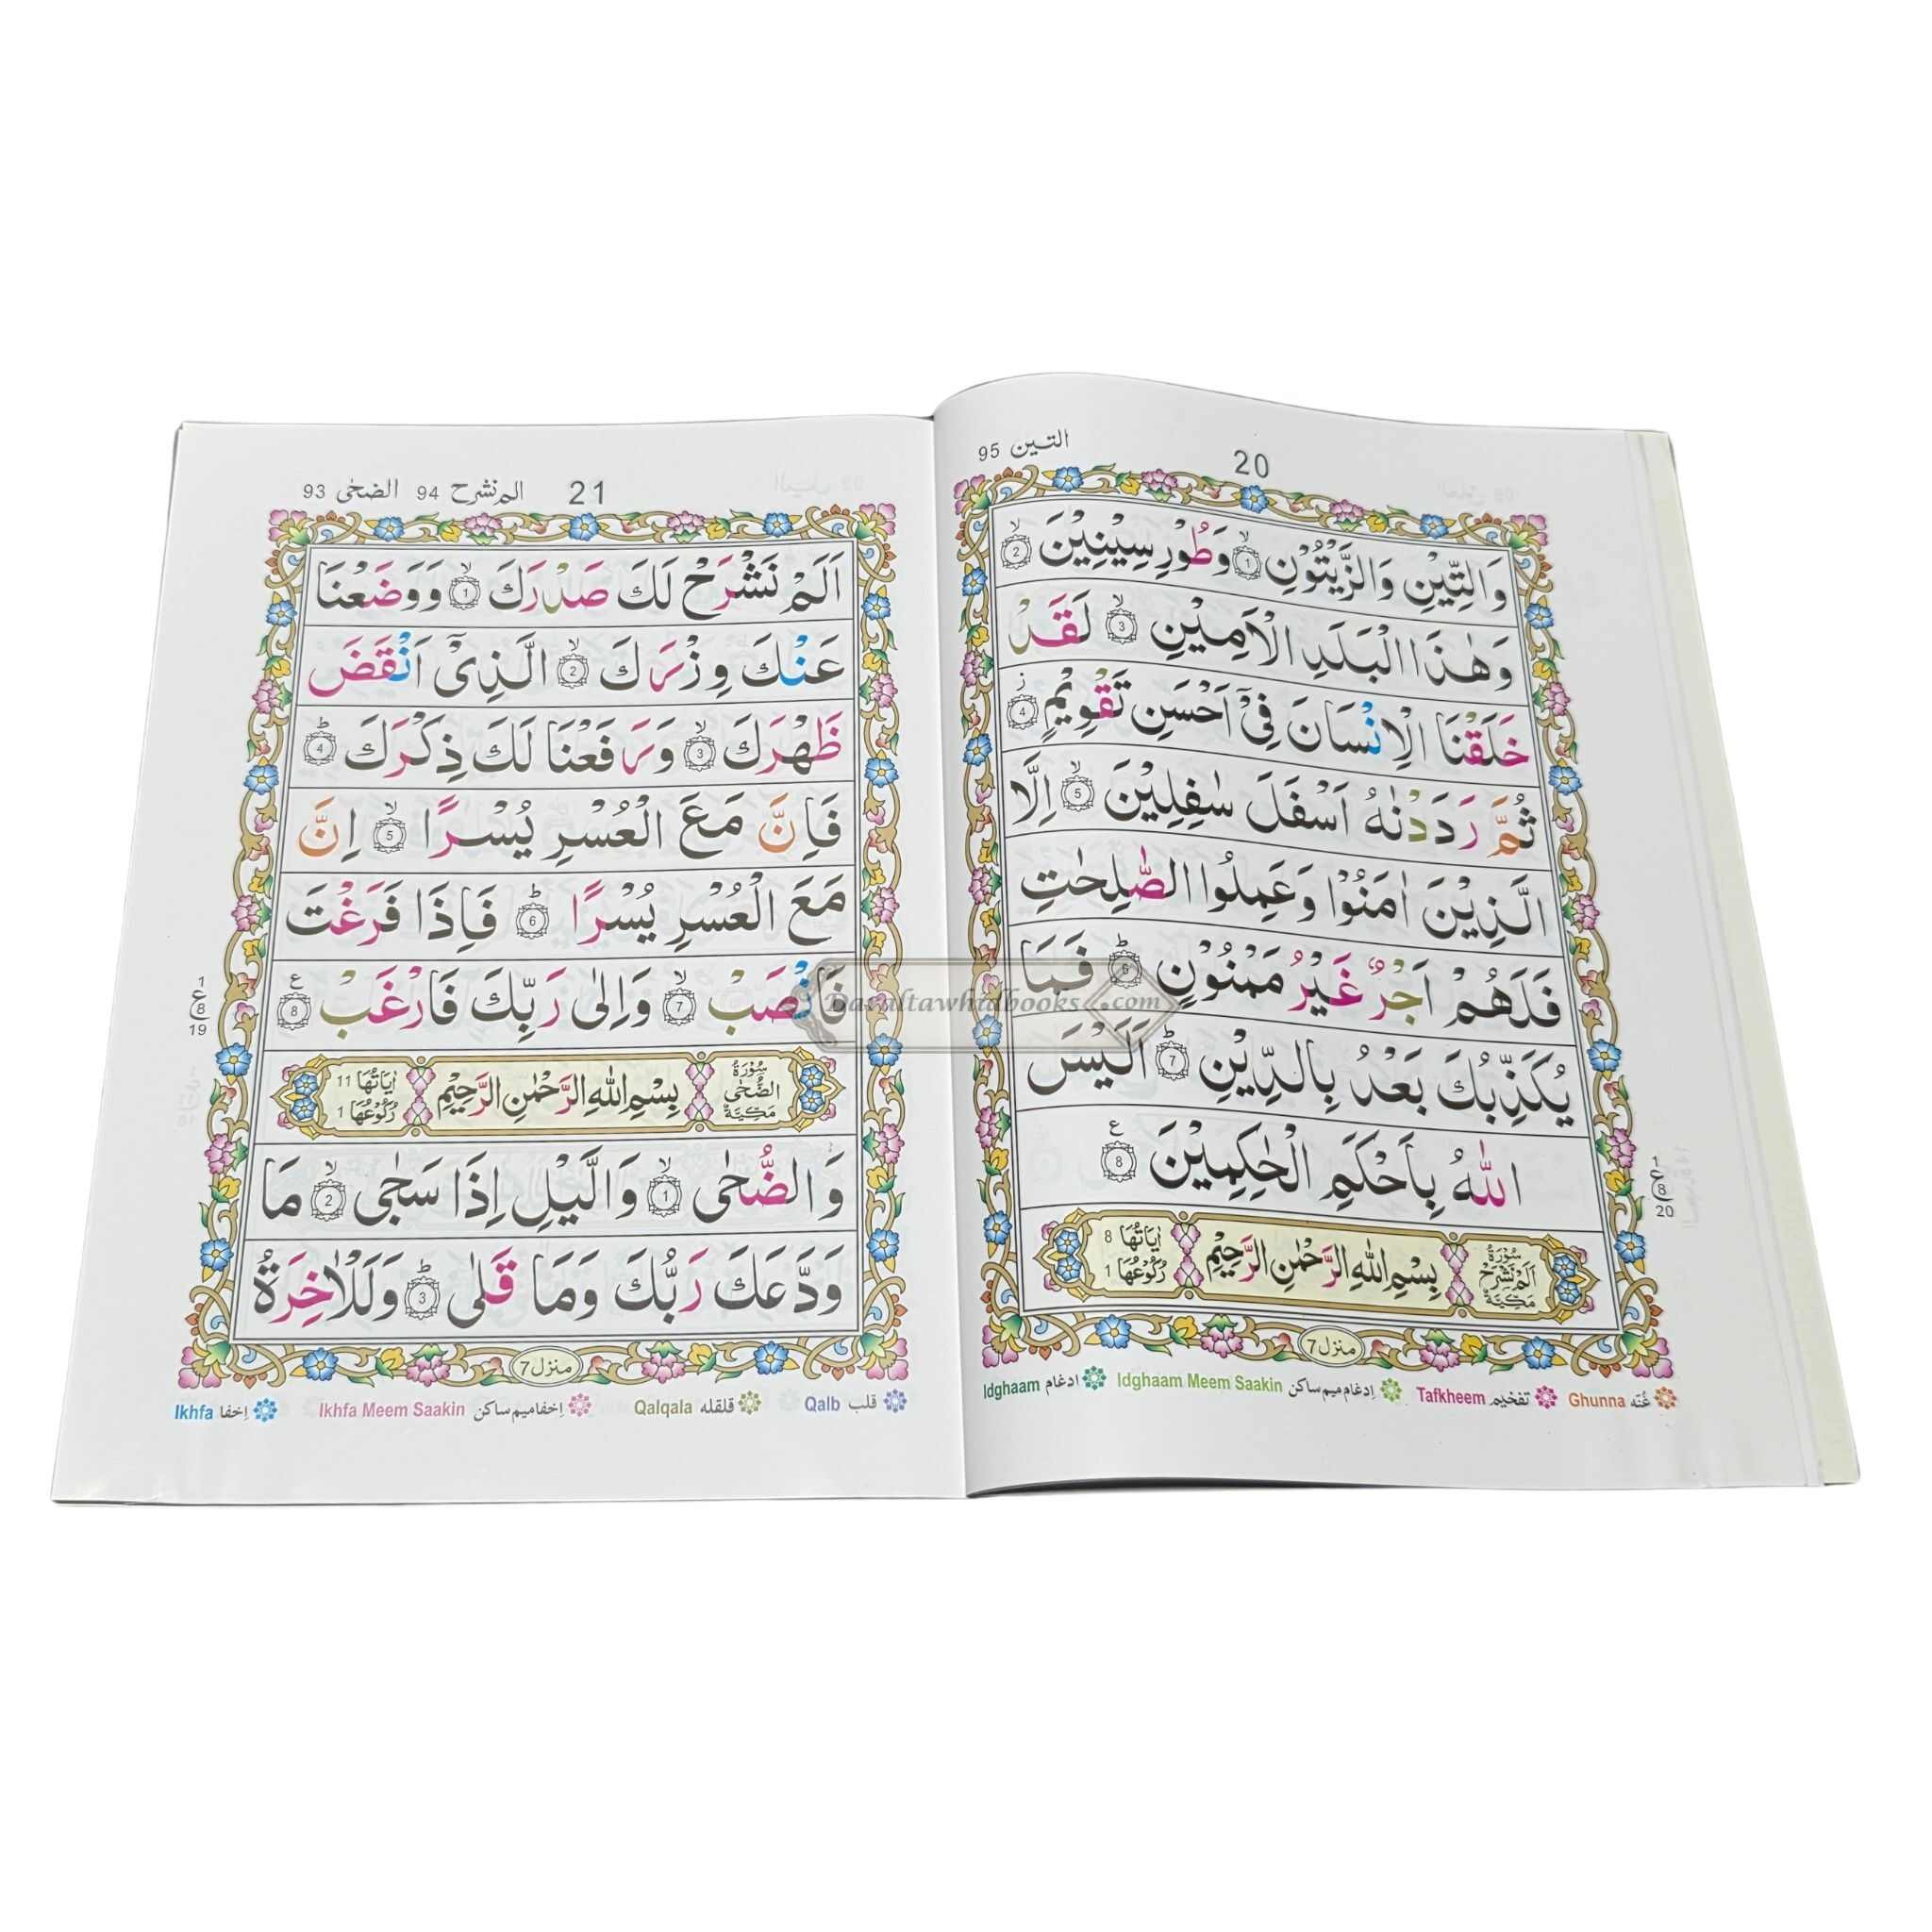 20 التـين 95
وَالتِّيْنِ وَالزَّيْتُوْنِ ۙ 1 وَطُوْرِ سِيْنِيْنَ ۙ 2
وَهٰذَا الْبَلَدِ الْاَمِيْنِ ۙ 3 لَقَدْ
خَلَقْنَا الْاِنْسَانَ فِيْۤ اَحْسَنِ تَقْوِيْمٍ ز 4
ثُمَّ رَدَدْنٰهُ اَسْفَلَ سٰفِلِيْنَ ۙ 5 اِلَّا
الَّذِيْنَ اٰمَنُوْا وَعَمِلُوا الصّٰلِحٰتِ
فَلَهُمْ اَجْرٌ غَيْرُ مَمْنُوْنٍ ؕ 6 فَمَا
يُكَذِّبُكَ بَعْدُ بِالدِّيْنِ ؕ 7 اَلَيْسَ
اللّٰهُ بِاَحْكَمِ الْحٰكِمِيْنَ ع 8
1
ع
8
20
سُوْرَةُ اَلَمْ نَشْرَحْ مَكِّيَّةٌ بِسْمِ اللّٰهِ الرَّحْمٰنِ الرَّحِيْمِ اٰيَاتُهَا 8 رُكُوْعُهَا 1
منزل 7
Idghaam ادغام Idghaam Meem Saakin اِدغام میم ساکن Tafkheem تفخیم Ghunna غُنّه
21 الم نشرح 94 الضحٰی 93
اَلَمْ نَشْرَحْ لَكَ صَدْرَكَ ۙ 1 وَوَضَعْنَا
عَنْكَ وِزْرَكَ ۙ 2 الَّذِيْۤ اَنْقَضَ
ظَهْرَكَ ۙ 3 وَرَفَعْنَا لَكَ ذِكْرَكَ ؕ 4
فَاِنَّ مَعَ الْعُسْرِ يُسْرًا ۙ 5 اِنَّ
مَعَ الْعُسْرِ يُسْرًا ؕ 6 فَاِذَا فَرَغْتَ
فَانْصَبْ ۙ 7 وَاِلٰى رَبِّكَ فَارْغَبْ ع 8
1
ع
8
19
سُوْرَةُ الضُّحٰى مَكِّيَّةٌ بِسْمِ اللّٰهِ الرَّحْمٰنِ الرَّحِيْمِ اٰيَاتُهَا 11 رُكُوْعُهَا 1
وَالضُّحٰى ۙ 1 وَالَّيْلِ اِذَا سَجٰى ۙ 2 مَا
وَدَّعَكَ رَبُّكَ وَمَا قَلٰى ؕ 3 وَلَلْاٰخِرَةُ
منزل 7
Ikhfa اِخفا Ikhfa Meem Saakin اِخفا میم ساکن Qalqala قلقله Qalb قلب
Darultawhidbooks.com